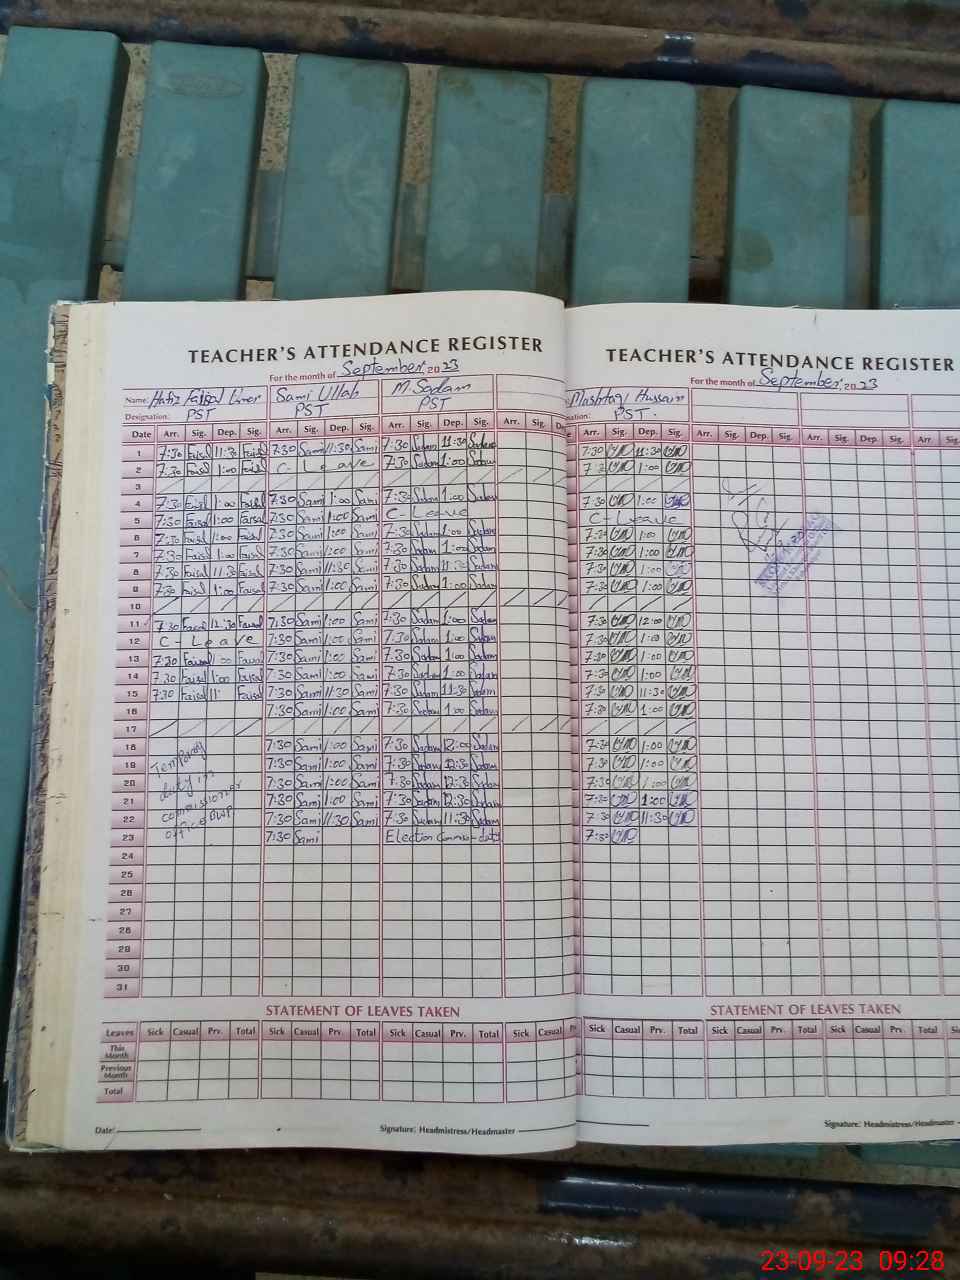 TEACHER'S ATTENDANCE REGISTER
For the month of September, 2023
Name: Hafiz Faisal Umer Sami Ullah M. Sadam
Designation: PST PST PST
Date Arr. Sig. Dep. Sig. Arr. Sig. Dep. Sig. Arr. Sig. Dep. Sig. Arr. Sig. De
1 7:30 Faisal 11:30 Faisal 7:30 Sami 11:30 Sami 7:30 Sadam 11:30 Sadam
2 7:30 Faisal 1:00 Faisal C-Leave 7:30 Sadam 1:00 Sadam
3
4 7:30 Faisal 1:00 Faisal 7:30 Sami 1:00 Sami 7:30 Sadam 1:00 Sadam
5 7:30 Faisal 1:00 Faisal 7:30 Sami 1:00 Sami C-Leave
6 7:30 Faisal 1:00 Faisal 7:30 Sami 1:00 Sami 7:30 Sadam 1:00 Sadam
7 7:30 Faisal 1:00 Faisal 7:30 Sami 1:00 Sami 7:30 Sadam 1:00 Sadam
8 7:30 Faisal 11:30 Faisal 7:30 Sami 11:30 Sami 7:30 Sadam 11:30 Sadam
9 7:30 Faisal 1:00 Faisal 7:30 Sami 1:00 Sami 7:30 Sadam 1:00 Sadam
10
11 7:30 Faisal 12:30 Faisal 7:30 Sami 1:00 Sami 7:30 Sadam 1:00 Sadam
12 C-Leave 7:30 Sami 1:00 Sami 7:30 Sadam 1:00 Sadam
13 7:30 Faisal 1:00 Faisal 7:30 Sami 1:00 Sami 7:30 Sadam 1:00 Sadam
14 7:30 Faisal 1:00 Faisal 7:30 Sami 1:00 Sami 7:30 Sadam 1:00 Sadam
15 7:30 Faisal 11: Faisal 7:30 Sami 11:30 Sami 7:30 Sadam 11:30 Sadam
16 7:30 Sami 1:00 Sami 7:30 Sadam 1:00 Sadam
17
18 7:30 Sami 1:00 Sami 7:30 Sadam 12:00 Sadam
19 7:30 Sami 1:00 Sami 7:30 Sadam 12:30 Sadam
20 7:30 Sami 1:00 Sami 7:30 Sadam 12:30 Sadam
21 7:30 Sami 1:00 Sami 7:30 Sadam 12:30 Sadam
22 7:30 Sami 11:30 Sami 7:30 Sadam 11:30 Sadam
23 7:30 Sami Election Commiss-duty
24
25
26
27
28
29
30
31
Temporay
duty in
commissioner
office BWP
STATEMENT OF LEAVES TAKEN
Leaves Sick Casual Prv. Total Sick Casual Prv. Total Sick Casual Prv. Total Sick Casual Pr
This Month
Previous Month
Total
Date: Signature: Headmistress/Headmaster
TEACHER'S ATTENDANCE REGISTER
For the month of September, 2023
Mashtaq Hussain
nation: PST.
Arr. Sig. Dep. Sig. Arr. Sig. Dep. Sig. Arr. Sig. Dep. Sig. Arr. Sig.
7:30 11:30
7:30 1:00
7:30 1:00
C-Leave
7:30 1:00
7:30 1:00
7:30 1:00
7:30 1:00
7:30 12:00
7:30 1:00
7:30 1:00
7:30 1:00
7:30 11:30
7:30 1:00
7:30 1:00
7:30 1:00
7:30 1:00
7:30 1:00
7:30 11:30
7:30
STATEMENT OF LEAVES TAKEN
Sick Casual Prv. Total Sick Casual Prv. Total Sick Casual Prv. Total
Signature: Headmistress/Headmaster
23-09-23 09:28